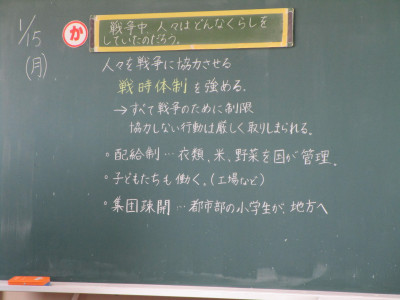 1/15
(月)
か
戦争中、人々はどんなくらしを
していたのだろう。
人々を戦争に協力させる
戦時体制を強める.
→すべて戦争のために制限
協力しない行動は厳しく取りしまられる.
・配給制…衣類、米、野菜を国が管理.
・子どもたちも働く。(工場など)
・集団疎開…都市部の小学生が、地方へ